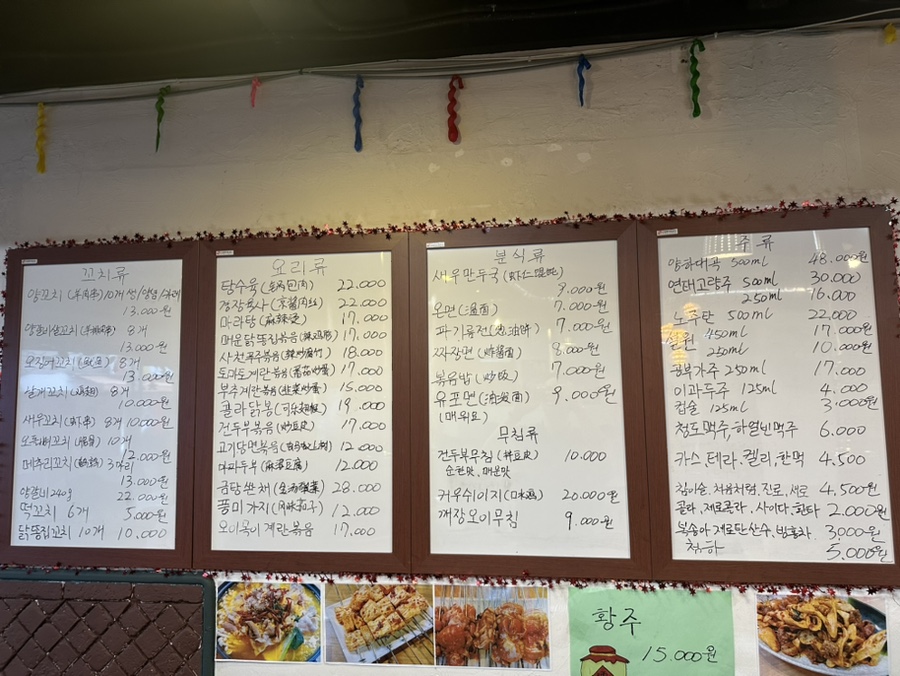 꼬치류
양꼬치 (羊肉串) 10개 생/양념/카레
13,000원
8개
13,000원
오징어꼬치 (鱿鱼) 8개
13,000원
8개
10,000원
새우꼬치 (虾串) 8개 10,000원
10개
12,000원
메추리꼬치 3마리
13,000원
양갈비 240g 22,000원
떡꼬치 6개 5,000원
닭똥집꼬치 10개 10,000
요리류
탕수육 (锅包肉) 22,000
경장육사 (京酱肉丝) 22,000
마라탕 (麻辣烫) 17,000
매운닭똥집볶음 17,000
사천푸주볶음 (辣炒腐竹) 18,000
토마토계란볶음 (番茄炒蛋) 17,000
부추계란볶음 (韭菜炒蛋) 15,000
콜라닭봉 (可乐鸡翅) 19,000
건두부볶음 (炒豆皮) 17,000
고기당면볶음 12,000
마파두부 (麻婆豆腐) 12,000
금탕쏸채 (金汤酸菜) 28,000
풍미가지 (风味茄子) 12,000
오이목이계란볶음 17,000
분식류
새우만두국 (虾仁馄饨)
9,000원
온면 (温面) 7,000원
파기름전 (葱油饼) 7,000원
짜장면 (炸酱面) 8,000원
볶음밥 (炒饭) 7,000원
유포면 (油泼面) 9,000원
(매워요)
무침류
건두부무침 (拌豆皮) 10,000
순한맛, 매운맛
커우수이지 (口水鸡) 20,000원
깨장오이무침 9,000원
주류
양하대곡 500ml 48,000원
연태고량주 500ml 30,000
250ml 16,000
노주탄 500ml 22,000
설원 450ml 17,000
250ml 10,000원
공부가주 250ml 17,000
이과두주 125ml 4,000
컵술 125ml 3,000원
청도맥주, 하얼빈맥주 6,000
카스, 테라, 켈리, 한맥 4,500
참이슬, 처음처럼, 진로, 새로 4,500원
콜라, 제로콜라, 사이다, 환타 2,000원
복숭아 제로탄산수, 빙홍차 3,000원
청하 5,000원
황주
15,000원